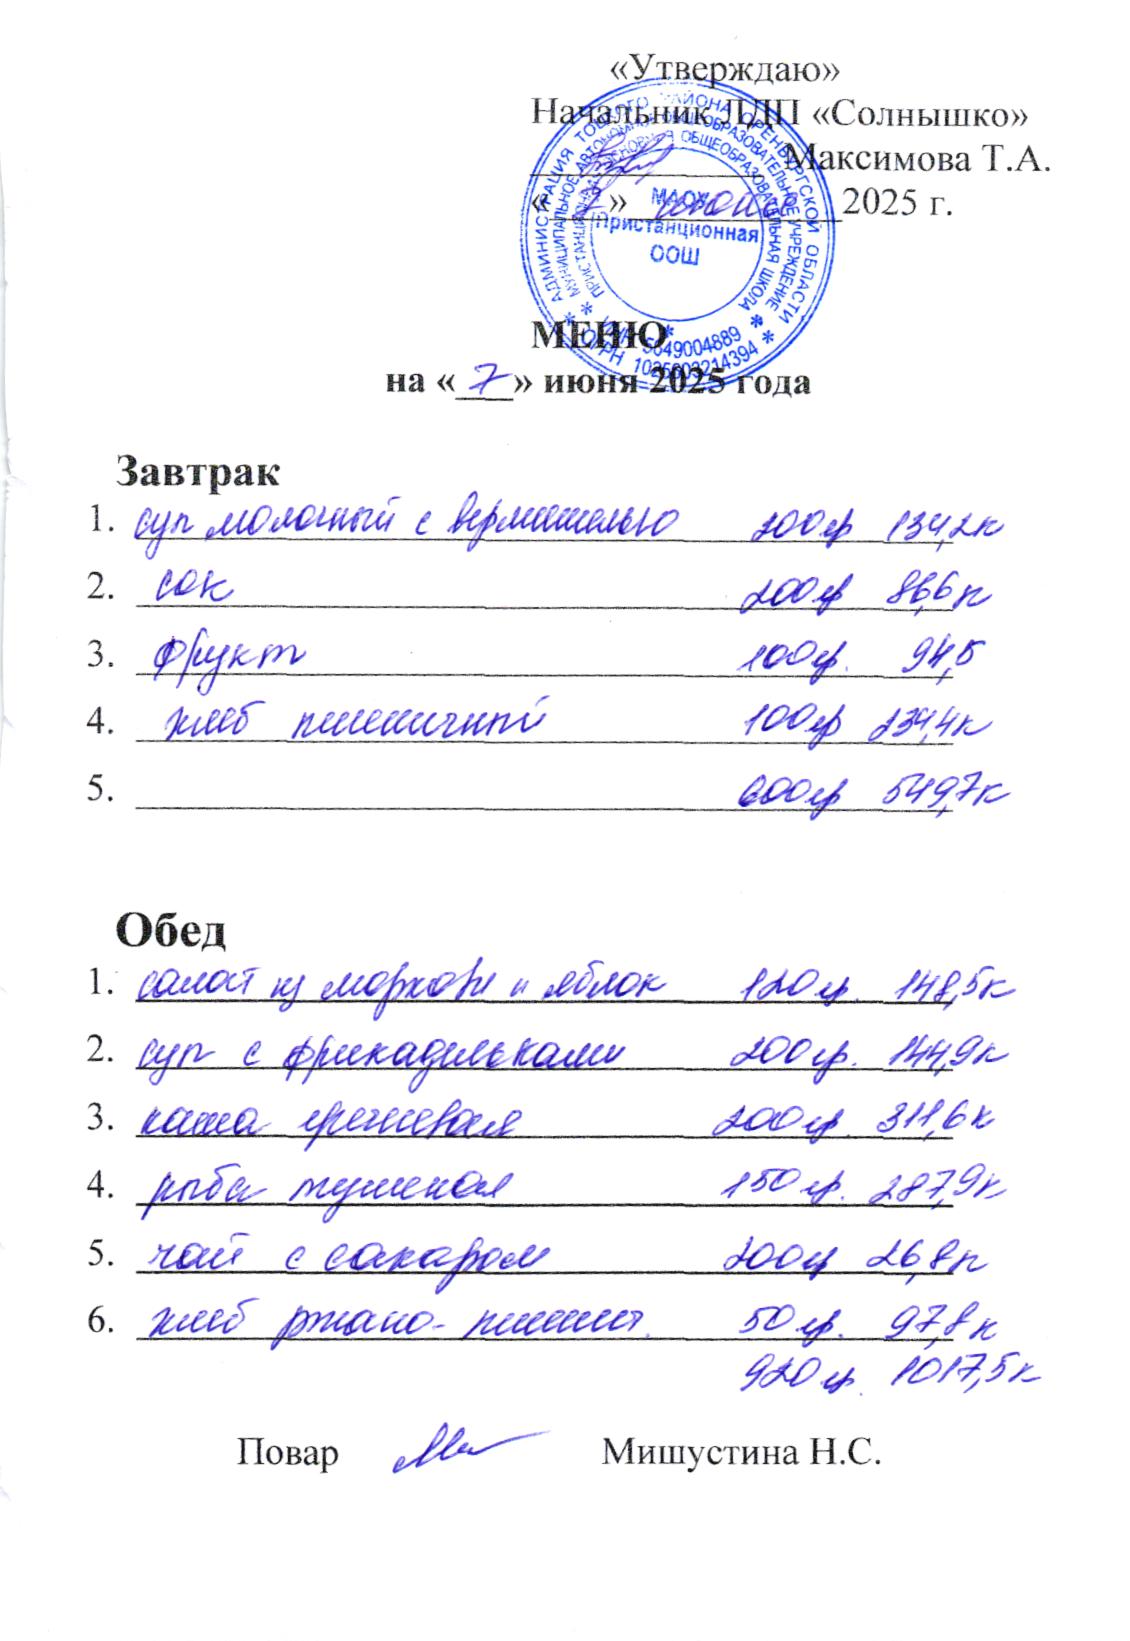 «Утверждаю»
Начальник ЛДП «Солнышко»
Максимова Т.А.
«7» июня 2025 г.
АДМИНИСТРАЦИЯ ТОЦКОГО РАЙОНА ОРЕНБУРГСКОЙ ОБЛАСТИ
МУНИЦИПАЛЬНОЕ АВТОНОМНОЕ ОБЩЕОБРАЗОВАТЕЛЬНОЕ УЧРЕЖДЕНИЕ
ПРИСТАНЦИОННАЯ ОСНОВНАЯ ОБЩЕОБРАЗОВАТЕЛЬНАЯ ШКОЛА
МАОУ
Пристанционная
ООШ
ИНН 5649004889
ОГРН 1025603214394
МЕНЮ
на «7» июня 2025 года
Завтрак
1. суп молочный с вермишелью 200гр 134,2к
2. сок 200гр 86,6к
3. фрукт 100гр. 94,5
4. хлеб пшеничный 100гр 234,4к
5. 600гр 549,7к
Обед
1. салат из моркови и яблок 120гр. 148,5к
2. суп с фрикадельками 200гр. 144,9к
3. каша гречневая 200гр. 311,6к
4. рыба тушеная 150гр. 287,9к
5. чай с сахаром 200гр 26,8к
6. хлеб ржано-пшенич. 50гр. 97,8к
920гр. 1017,5к
Повар Мишустина Н.С.